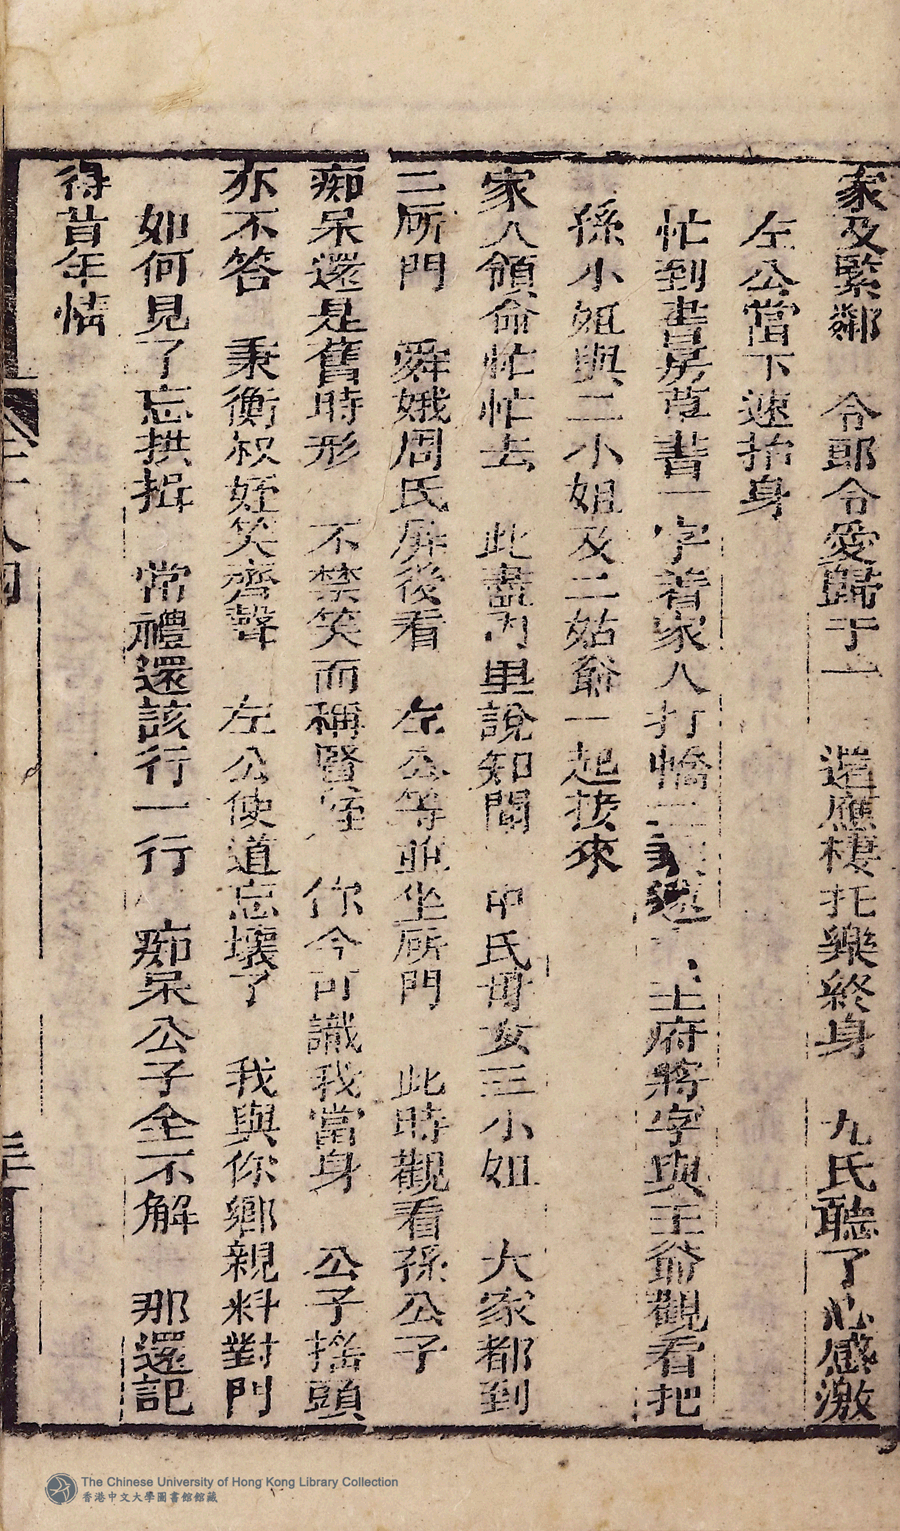 家及緊鄰　令郎令愛歸于上　還應棲托樂終身　九氏聽了心感激
左公當下速抬身
忙到書房草書一字着家人打轎二　王府將字與王爺觀看把
孫小姐與二小姐及二姑爺一起接來
家人領命忙忙去　此盡內里說知聞　申氏母女三小姐　大家都到
二所門　舜娥周氏屏後看　左公等並坐所門　此時觀看孫公子
痴呆還是舊時形　不禁笑而稱賢侄　你今可識我當身　公子搖頭
亦不答　秉衡叔姪笑齊聲　左公使道忘壞了　我與你鄉親料對門
如何見了忘拱揖　常禮還該行一行　痴呆公子全不解　那還記
得昔年情
The Chinese University of Hong Kong Library Collection
香港中文大學圖書館館藏